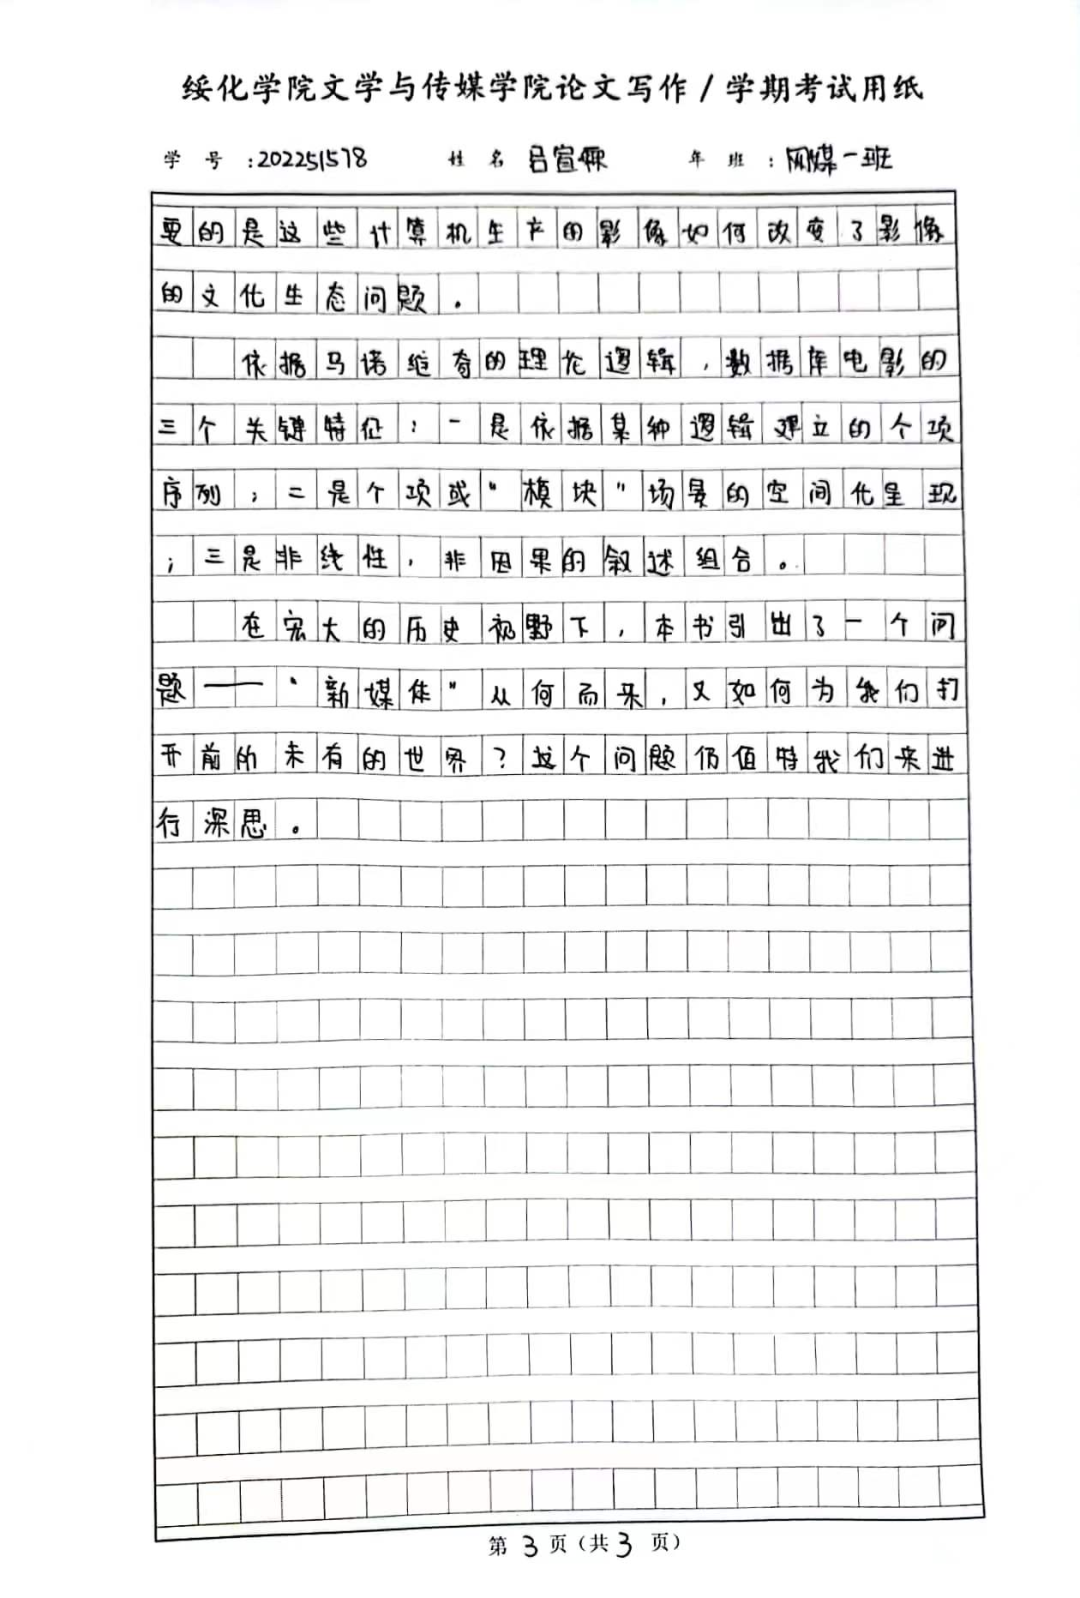 绥化学院文学与传媒学院论文写作 / 学期考试用纸
学 号 :202251578 姓 名 吕宣 年 班 : 网媒一班
要的是这些计算机生产的影像如何改变了影像
的文化生态问题。
依据马诺维奇的理论逻辑,数据库电影的
三个关键特征:一是依据某种逻辑建立的个项
序列;二是个项或“模块”场景的空间化呈现
;三是非线性,非因果的叙述组合。
在宏大的历史视野下,本书引出了一个问
题——“新媒体”从何而来,又如何为我们打
开前所未有的世界?这个问题仍值得我们来进
行深思。
第 3 页(共 3 页)